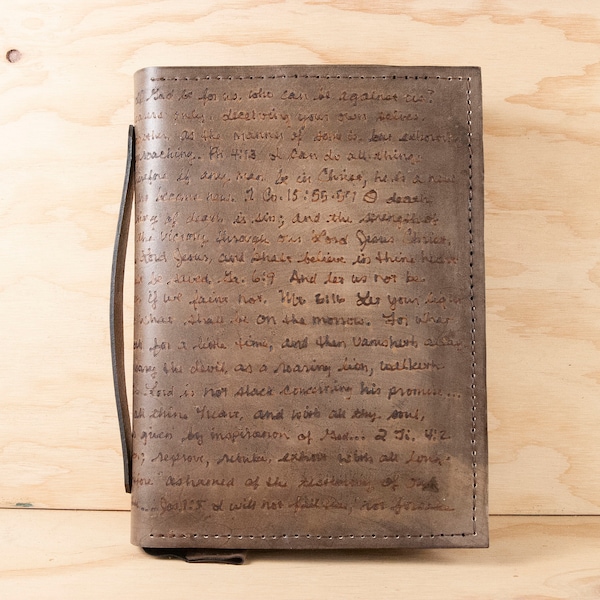 God be for us, who can be against us?
only, deceiving your own selves.
as the manner of some is, but exhorting
Ph 4:13 I can do all things
if any man be in Christ, he is a new
become new. I Co. 15:55-57 O death,
of death is sin; and the strength of
the victory through our Lord Jesus Christ.
Lord Jesus, and shalt believe in thine heart
be saved. Ga. 6:9 And let us not be
if we faint not. Mt. 5:16 Let your light
what shall be on the morrow. For what
for a little time, and then vanisheth away
the devil, as a roaring lion, walketh
Lord is not slack concerning his promise...
all thine heart, and with all thy soul,
given by inspiration of God... 2 Ti. 4:2
reprove, rebuke, exhort with all long-
ashamed of the testimony of our
Jos. 1:5 I will not fail thee, nor forsake